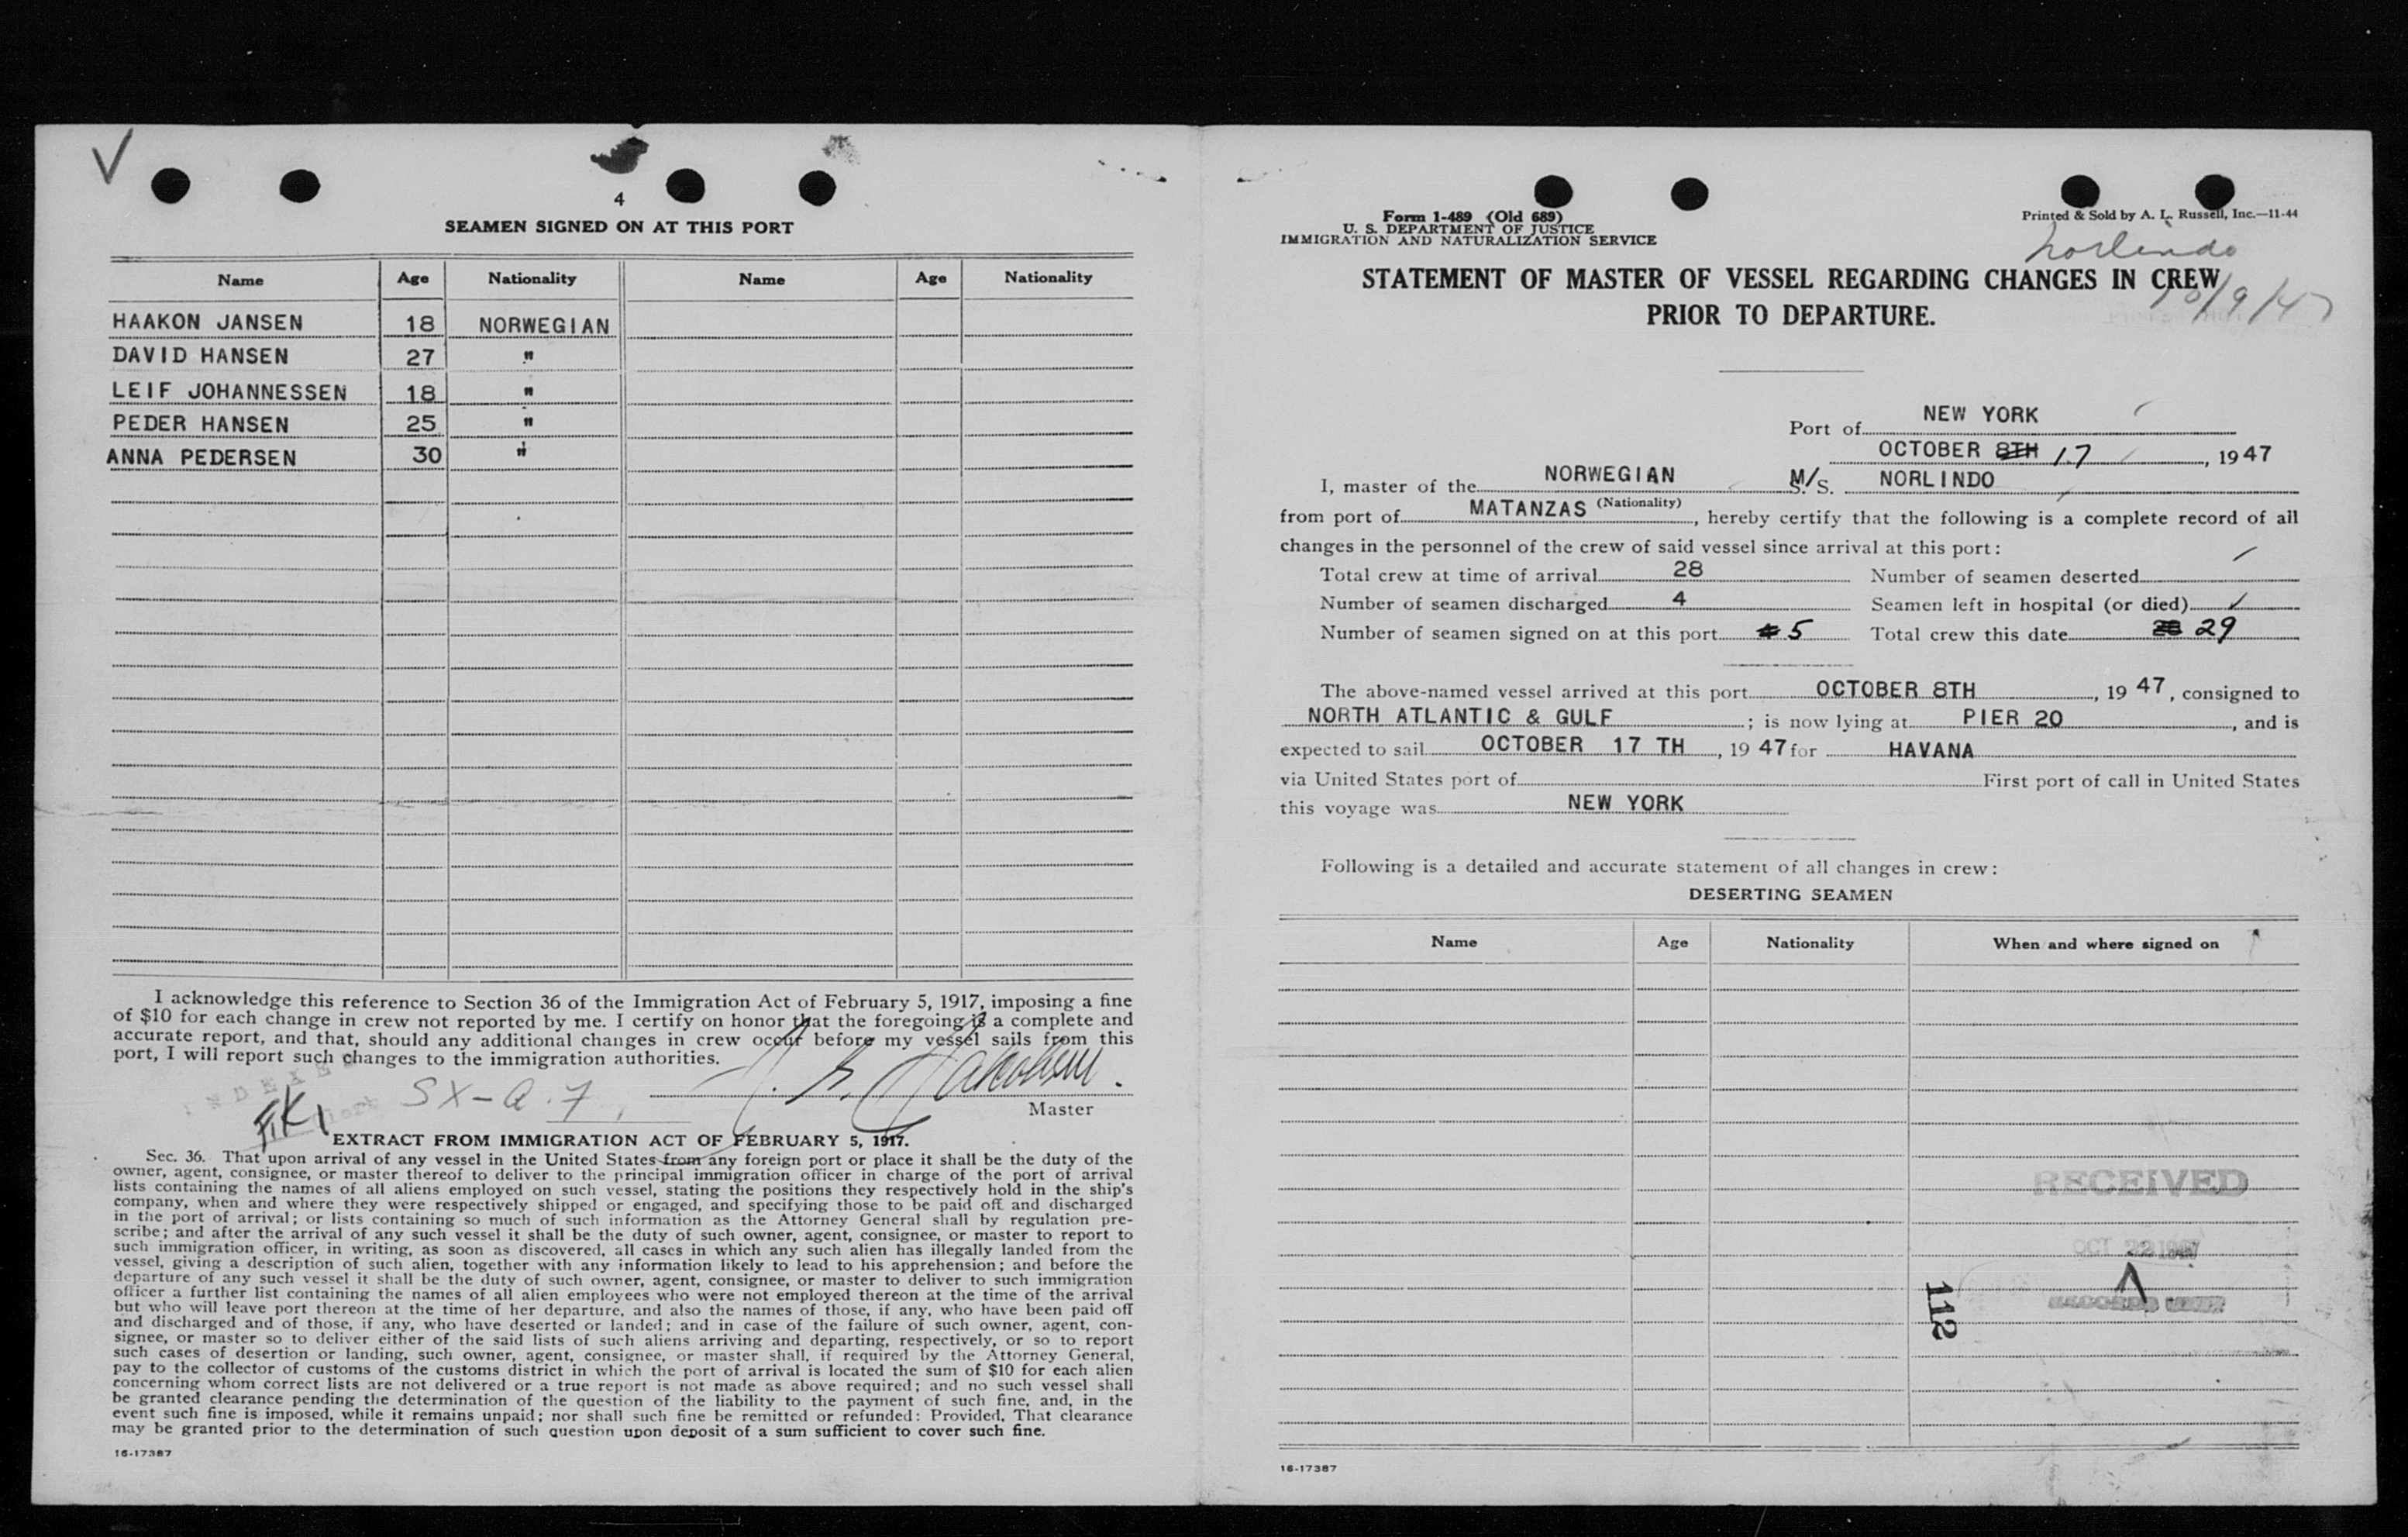 4
SEAMEN SIGNED ON AT THIS PORT
Name Age Nationality Name Age Nationality
HAAKON JANSEN 18 NORWEGIAN
DAVID HANSEN 27 "
LEIF JOHANNESSEN 18 "
PEDER HANSEN 25 "
ANNA PEDERSEN 30 "
I acknowledge this reference to Section 36 of the Immigration Act of February 5, 1917, imposing a fine
of $10 for each change in crew not reported by me. I certify on honor that the foregoing is a complete and
accurate report, and that, should any additional changes in crew occur before my vessel sails from this
port, I will report such changes to the immigration authorities.
SX-a.7
Master
EXTRACT FROM IMMIGRATION ACT OF FEBRUARY 5, 1917.
Sec. 36. That upon arrival of any vessel in the United States from any foreign port or place it shall be the duty of the
owner, agent, consignee, or master thereof to deliver to the principal immigration officer in charge of the port of arrival
lists containing the names of all aliens employed on such vessel, stating the positions they respectively hold in the ship's
company, when and where they were respectively shipped or engaged, and specifying those to be paid off and discharged
in the port of arrival; or lists containing so much of such information as the Attorney General shall by regulation pre-
scribe; and after the arrival of any such vessel it shall be the duty of such owner, agent, consignee, or master to report to
such immigration officer, in writing, as soon as discovered, all cases in which any such alien has illegally landed from the
vessel, giving a description of such alien, together with any information likely to lead to his apprehension; and before the
departure of any such vessel it shall be the duty of such owner, agent, consignee, or master to deliver to such immigration
officer a further list containing the names of all alien employees who were not employed thereon at the time of the arrival
but who will leave port thereon at the time of her departure, and also the names of those, if any, who have been paid off
and discharged and of those, if any, who have deserted or landed; and in case of the failure of such owner, agent, con-
signee, or master so to deliver either of the said lists of such aliens arriving and departing, respectively, or so to report
such cases of desertion or landing, such owner, agent, consignee, or master shall, if required by the Attorney General,
pay to the collector of customs of the customs district in which the port of arrival is located the sum of $10 for each alien
concerning whom correct lists are not delivered or a true report is not made as above required; and no such vessel shall
be granted clearance pending the determination of the question of the liability to the payment of such fine, and, in the
event such fine is imposed, while it remains unpaid; nor shall such fine be remitted or refunded: Provided, That clearance
may be granted prior to the determination of such question upon deposit of a sum sufficient to cover such fine.
16-17387
Form 1-489 (Old 689)
U. S. DEPARTMENT OF JUSTICE
IMMIGRATION AND NATURALIZATION SERVICE
Printed & Sold by A. L. Russell, Inc.—11-44
Norlindo
10/9/47
STATEMENT OF MASTER OF VESSEL REGARDING CHANGES IN CREW
PRIOR TO DEPARTURE.
Port of NEW YORK
OCTOBER 8TH 17, 1947
I, master of the NORWEGIAN M/S. NORLINDO
(Nationality)
from port of MATANZAS, hereby certify that the following is a complete record of all
changes in the personnel of the crew of said vessel since arrival at this port:
Total crew at time of arrival 28 Number of seamen deserted
Number of seamen discharged 4 Seamen left in hospital (or died)
Number of seamen signed on at this port 4 5 Total crew this date 28 29
The above-named vessel arrived at this port OCTOBER 8TH, 1947, consigned to
NORTH ATLANTIC & GULF; is now lying at PIER 20, and is
expected to sail OCTOBER 17 TH, 1947 for HAVANA
via United States port of First port of call in United States
this voyage was NEW YORK
Following is a detailed and accurate statement of all changes in crew:
DESERTING SEAMEN
Name Age Nationality When and where signed on
RECEIVED
OCT 22 1947
112
16-17387